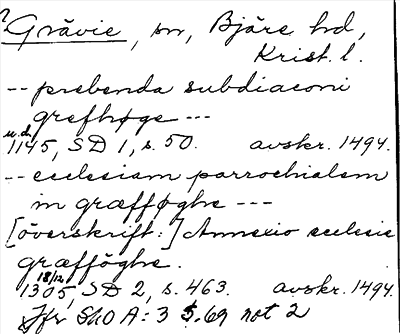 Grävie, sn, Bjäre hd,
Krist. l.
-- prebenda subdiaconi
grefhøge ---
u.d.
1145, SD 1, s. 50. avskr. 1494.
-- ecclesiam parrochialem
in græfføghe ---
[överskrift:] Annexio ecclesie
græfföghe.
18/12
1305, SD 2, s. 463. avskr. 1494.
Jfr SkO A: 3 s. 69 not 2